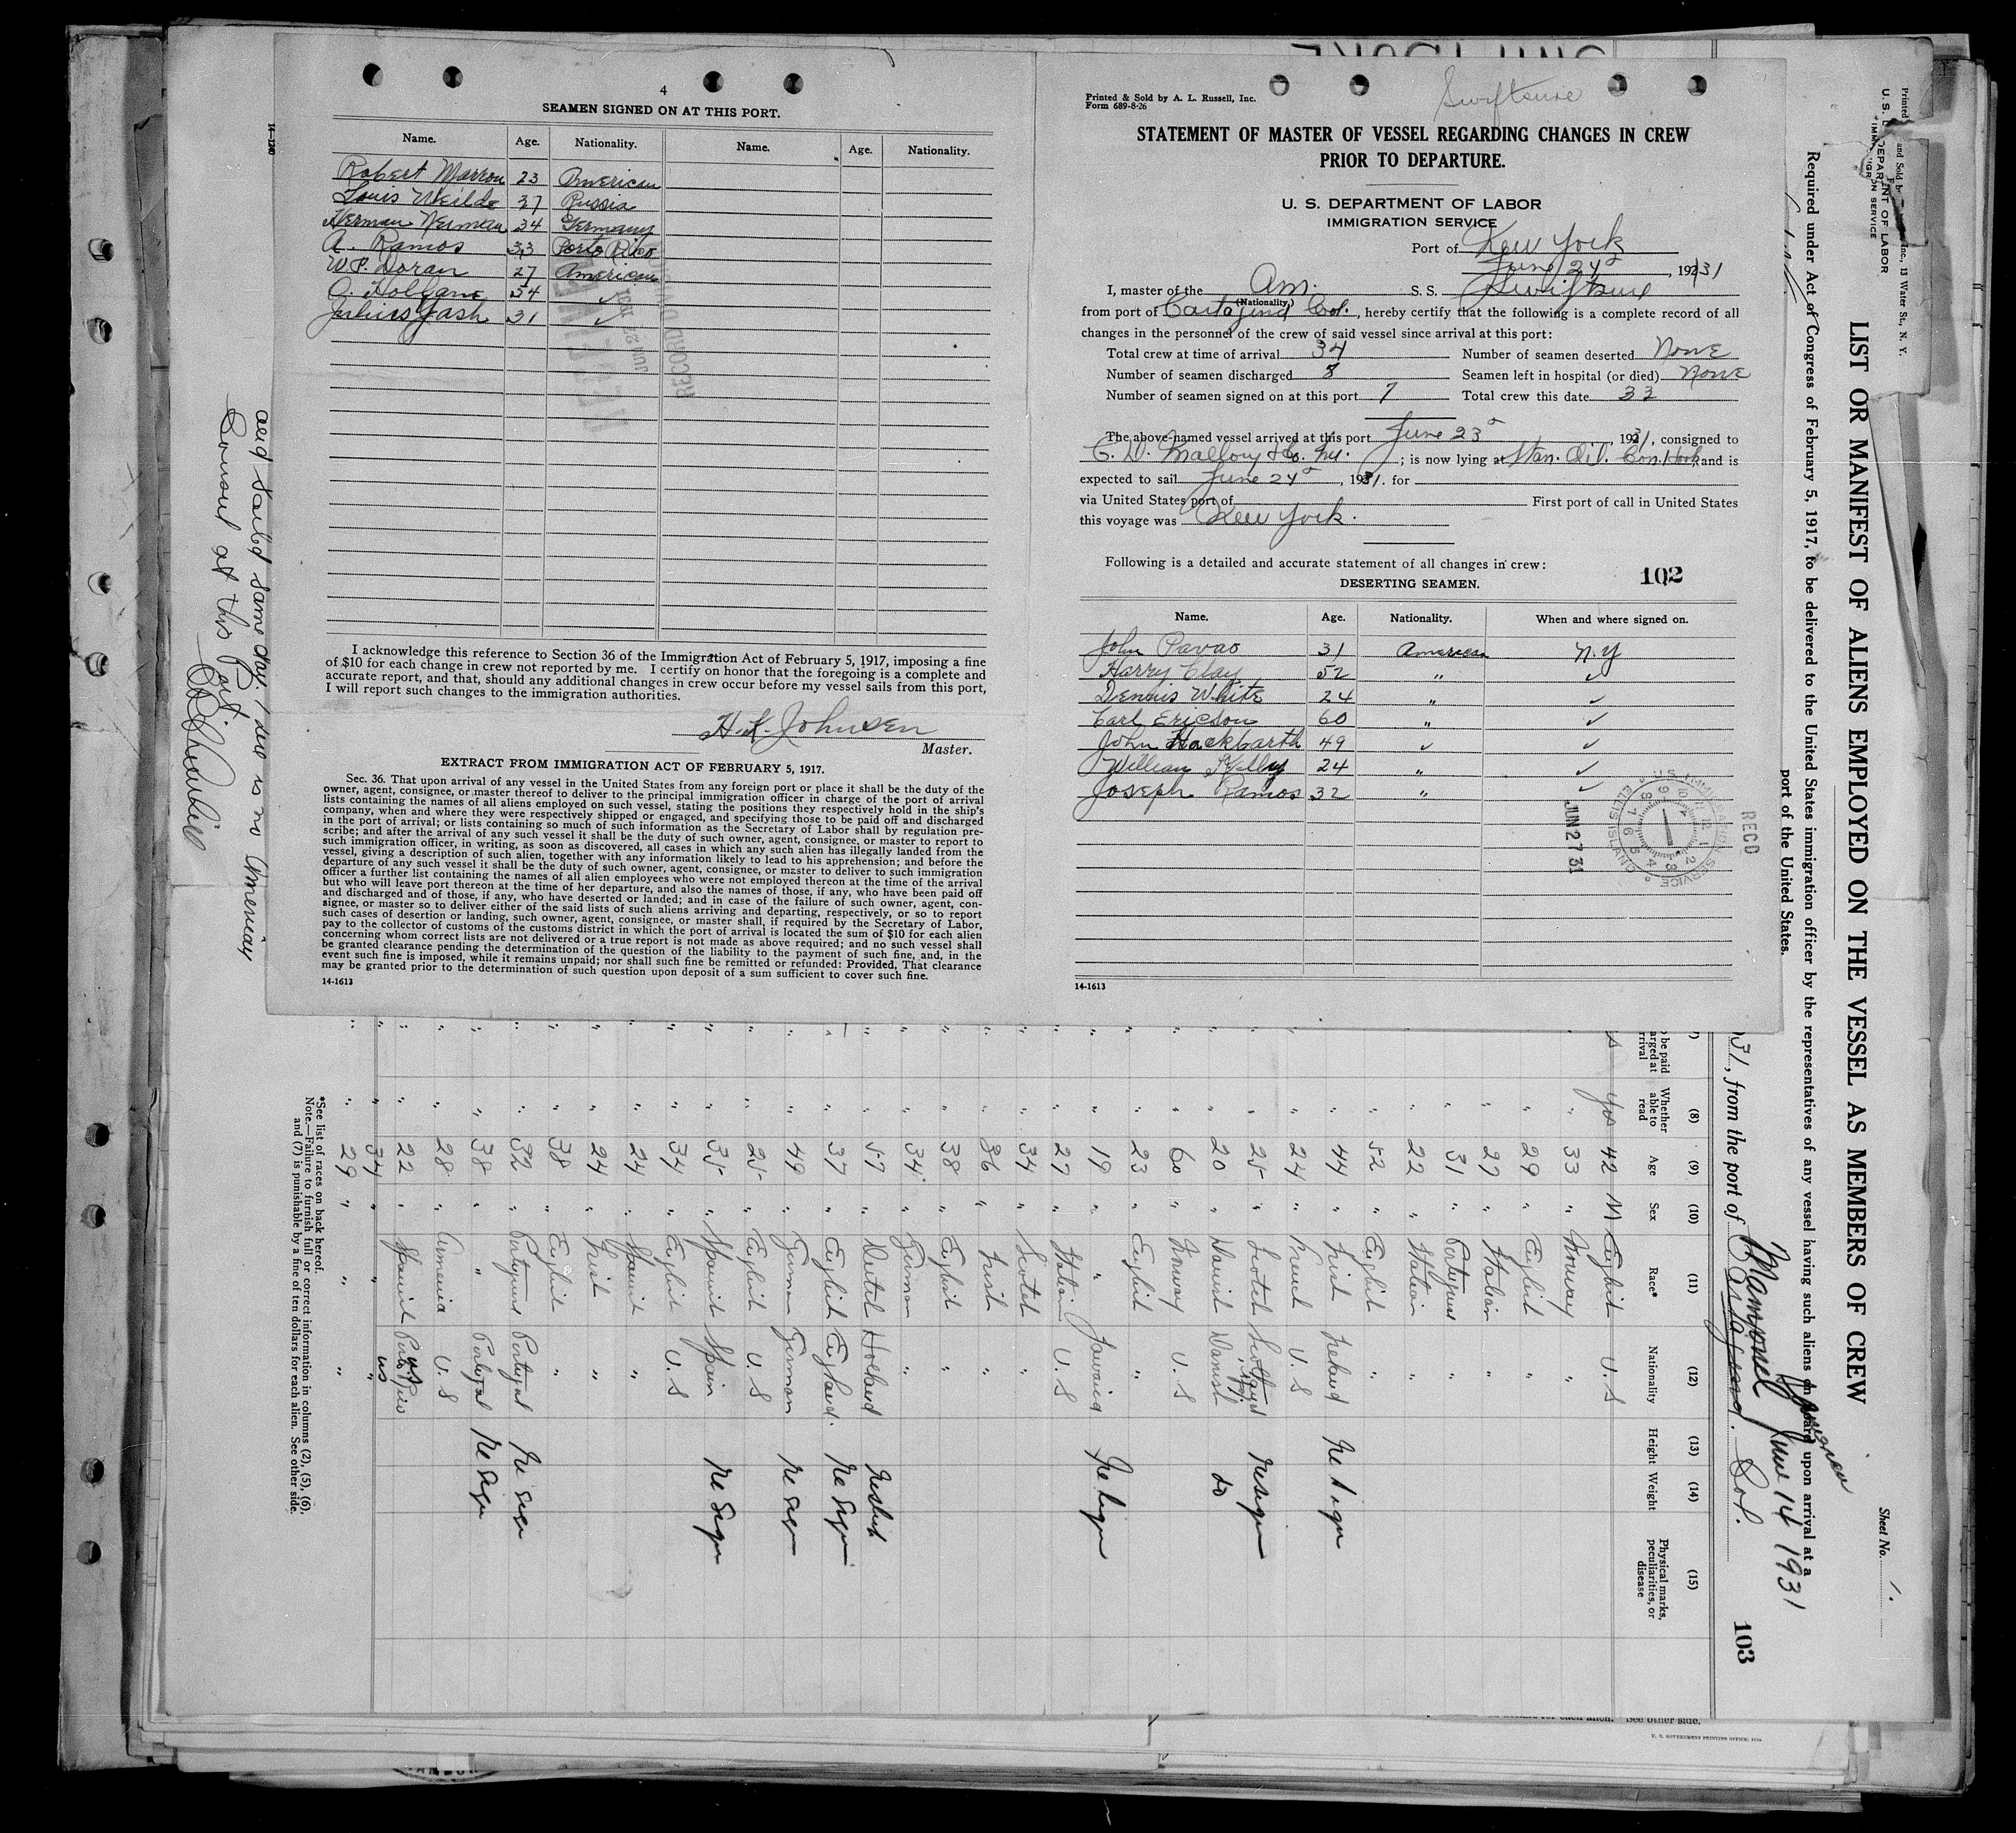 4
SEAMEN SIGNED ON AT THIS PORT.
Name. Age. Nationality. Name. Age. Nationality.
Robert Marron 23 American
Louis Weilde 37 Russia
Herman Neuman 34 Germany
A. Ramos 33 Porto Rico
W.P. Doran 27 American
O. Holland 34 ✓
Julius Gash 31 ✓
JUN 27 1931
RECORD
I acknowledge this reference to Section 36 of the Immigration Act of February 5, 1917, imposing a fine
of $10 for each change in crew not reported by me. I certify on honor that the foregoing is a complete and
accurate report, and that, should any additional changes in crew occur before my vessel sails from this port,
I will report such changes to the immigration authorities.
H. K. Johnsen
Master.
EXTRACT FROM IMMIGRATION ACT OF FEBRUARY 5, 1917.
Sec. 36. That upon arrival of any vessel in the United States from any foreign port or place it shall be the duty of the
owner, agent, consignee, or master thereof to deliver to the principal immigration officer in charge of the port of arrival
lists containing the names of all aliens employed on such vessel, stating the positions they respectively hold in the ship's
company, when and where they were respectively shipped or engaged, and specifying those to be paid off and discharged
in the port of arrival; or lists containing so much of such information as the Secretary of Labor shall by regulation pre-
scribe; and after the arrival of any such vessel it shall be the duty of such owner, agent, consignee, or master to report to
such immigration officer, in writing, as soon as discovered, all cases in which any such alien has illegally landed from the
vessel, giving a description of such alien, together with any information likely to lead to his apprehension; and before the
departure of any such vessel it shall be the duty of such owner, agent, consignee, or master to deliver to such immigration
officer a further list containing the names of all alien employees who were not employed thereon at the time of the arrival
but who will leave port thereon at the time of her departure, and also the names of those, if any, who have been paid off
and discharged and of those, if any, who have deserted or landed; and in case of the failure of such owner, agent, con-
signee, or master so to deliver either of the said lists of such aliens arriving and departing, respectively, or so to report
such cases of desertion or landing, such owner, agent, consignee, or master shall, if required by the Secretary of Labor,
pay to the collector of customs of the customs district in which the port of arrival is located the sum of $10 for each alien
concerning whom correct lists are not delivered or a true report is not made as above required; and no such vessel shall
be granted clearance pending the determination of the question of the liability to the payment of such fine, and, in the
event such fine is imposed, while it remains unpaid; nor shall such fine be remitted or refunded: Provided, That clearance
may be granted prior to the determination of such question upon deposit of a sum sufficient to cover such fine.
14-1613
14-1240
and sailed same day. There is no American
Consul at this Port
Printed & Sold by A. L. Russell, Inc.
Form 689-8-26
Swiftsure
STATEMENT OF MASTER OF VESSEL REGARDING CHANGES IN CREW
PRIOR TO DEPARTURE.
U. S. DEPARTMENT OF LABOR
IMMIGRATION SERVICE
Port of New York
June 24, 1931
I, master of the Am. S. S. Swiftsure
(Nationality)
from port of Cartagena Col., hereby certify that the following is a complete record of all
changes in the personnel of the crew of said vessel since arrival at this port:
Total crew at time of arrival 34 Number of seamen deserted None
Number of seamen discharged 8 Seamen left in hospital (or died) None
Number of seamen signed on at this port 7 Total crew this date 33
The above-named vessel arrived at this port June 23d, 1931, consigned to
C. D. Mallory & Co. Inc.; is now lying at Stan. Oil. Con. Hook and is
expected to sail June 24d, 1931. for
via United States port of First port of call in United States
this voyage was New York.
Following is a detailed and accurate statement of all changes in crew:
102
DESERTING SEAMEN.
Name. Age. Nationality. When and where signed on.
John Pavao 31 American N.Y
Harry Clay 52 " ✓
Dennis White 24 " ✓
Carl Ericson 60 " ✓
John Hackbarth 49 ✓ ✓
William Kelly 24 " ✓
Joseph Ramos 32 " ✓
REC'D
JUN 27 31
U.S. IMMIGRATION SERVICE
ELLIS ISLAND
14-1613
U. S. DEPARTMENT OF LABOR
IMMIGRATION SERVICE
Printed and Sold by Inc., 13 Water St., N. Y.
LIST OR MANIFEST OF ALIENS EMPLOYED ON THE VESSEL AS MEMBERS OF CREW
Sheet No. 1.
Required under Act of Congress of February 5, 1917, to be delivered to the United States immigration officer by the representatives of any vessel having such aliens on board upon arrival at a
port of the United States.
31, from the port of Cartagena. Col.
Mamonel June 14 1931
103
(8) (9) (10) (11) (12) (13) (14) (15)
Whether able to read Age Sex Race* Nationality Height Weight Physical marks, peculiarities, or disease
yes 42 M English U.S
" 33 " Norway "
" 29 " English "
" 27 " Italian "
" 31 " Portugal "
" 22 " Italian "
" 52 " English "
" 44 " Irish Ireland
" 24 " French U.S
" 25 " Scotch Scotland
" 20 " Danish Danish do
" 60 " Norway U.S
" 23 " English "
" 19 " " Jamaica
" 27 " Italian U.S
" 34 " Scotch "
" 36 " Irish "
" 38 " English "
" 34 " German "
" 57 " Dutch Holland
" 37 " English England.
" 49 " German German
" 25 " English U.S
" 35 " Spanish Spain
" 34 " English U.S
" 24 " Spanish "
" 24 " Irish "
" 38 " English "
" 32 " Portugal Portugal
" 38 " " Portugal
" 28 " Armenia U.S
" 22 " Spanish Porto Rico
" 34 " " " us
" 29 " " "
*See list of races on back hereof.
Note.—Failure to furnish full or correct information in columns (2), (5), (6),
and (7) is punishable by a fine of ten dollars for each alien. See other side.
See other side.
U. S. GOVERNMENT PRINTING OFFICE